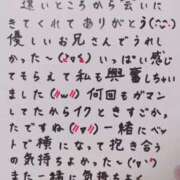 遠いところから会いに
きてくれてありがとう(◡̈)
優しいお兄さんでうれし
かった〜(≧◡≦)いっぱい感じ
てもらえて私も興奮しちゃい
ました(〃ω〃)何回もガマン
してたからイクときすごかっ
たですね(〃ω〃)一緒にベッ
トで横になって抱き合う
の気持ちよかった〜(^◡^)
また一緒に気持ちよく